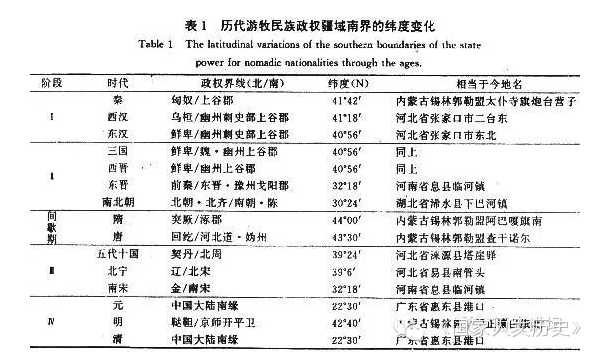 表 1 历代游牧民族政权疆域南界的纬度变化
Table 1 The latitudinal variations of the southern boundaries of the state
power for nomadic nationalities through the ages.
阶段 时代 政权界线(北/南) 纬度(N) 相当于今地名
秦 匈奴/上谷郡 41°42′ 内蒙古锡林郭勒盟太仆寺旗炮台营子
I 西汉 乌桓/幽州刺史部上谷郡 41°18′ 河北省张家口市二台东
东汉 鲜卑/幽州刺史部上谷郡 40°56′ 河北省张家口市东北
三国 鲜卑/魏·幽州上谷郡 40°56′ 同上
II 西晋 鲜卑/幽州上谷郡 40°56′ 同上
东晋 前秦/东晋·豫州弋阳郡 32°18′ 河南省息县临河镇
南北朝 北朝·北齐/南朝·陈 30°24′ 湖北省浠水县下巴河镇
间歇期 隋 突厥/涿郡 44°00′ 内蒙古锡林郭勒盟阿巴嘎旗南
唐 回纥/河北道·妫州 43°30′ 内蒙古锡林郭勒盟查干诺尔
五代十国 契丹/北周 39°24′ 河北省涞源县塔崖驿
III 北宁 辽/北宋 39°6′ 河北省易县南管头
南宋 金/南宋 32°18′ 河南省息县临河镇
元 中国大陆南缘 22°30′ 广东省惠东县港口
IV 明 鞑靼/京师开平卫 42°40′ 内蒙古锡林
清 中国大陆南缘 22°30′ 广东省惠东县港口
国家人文历史